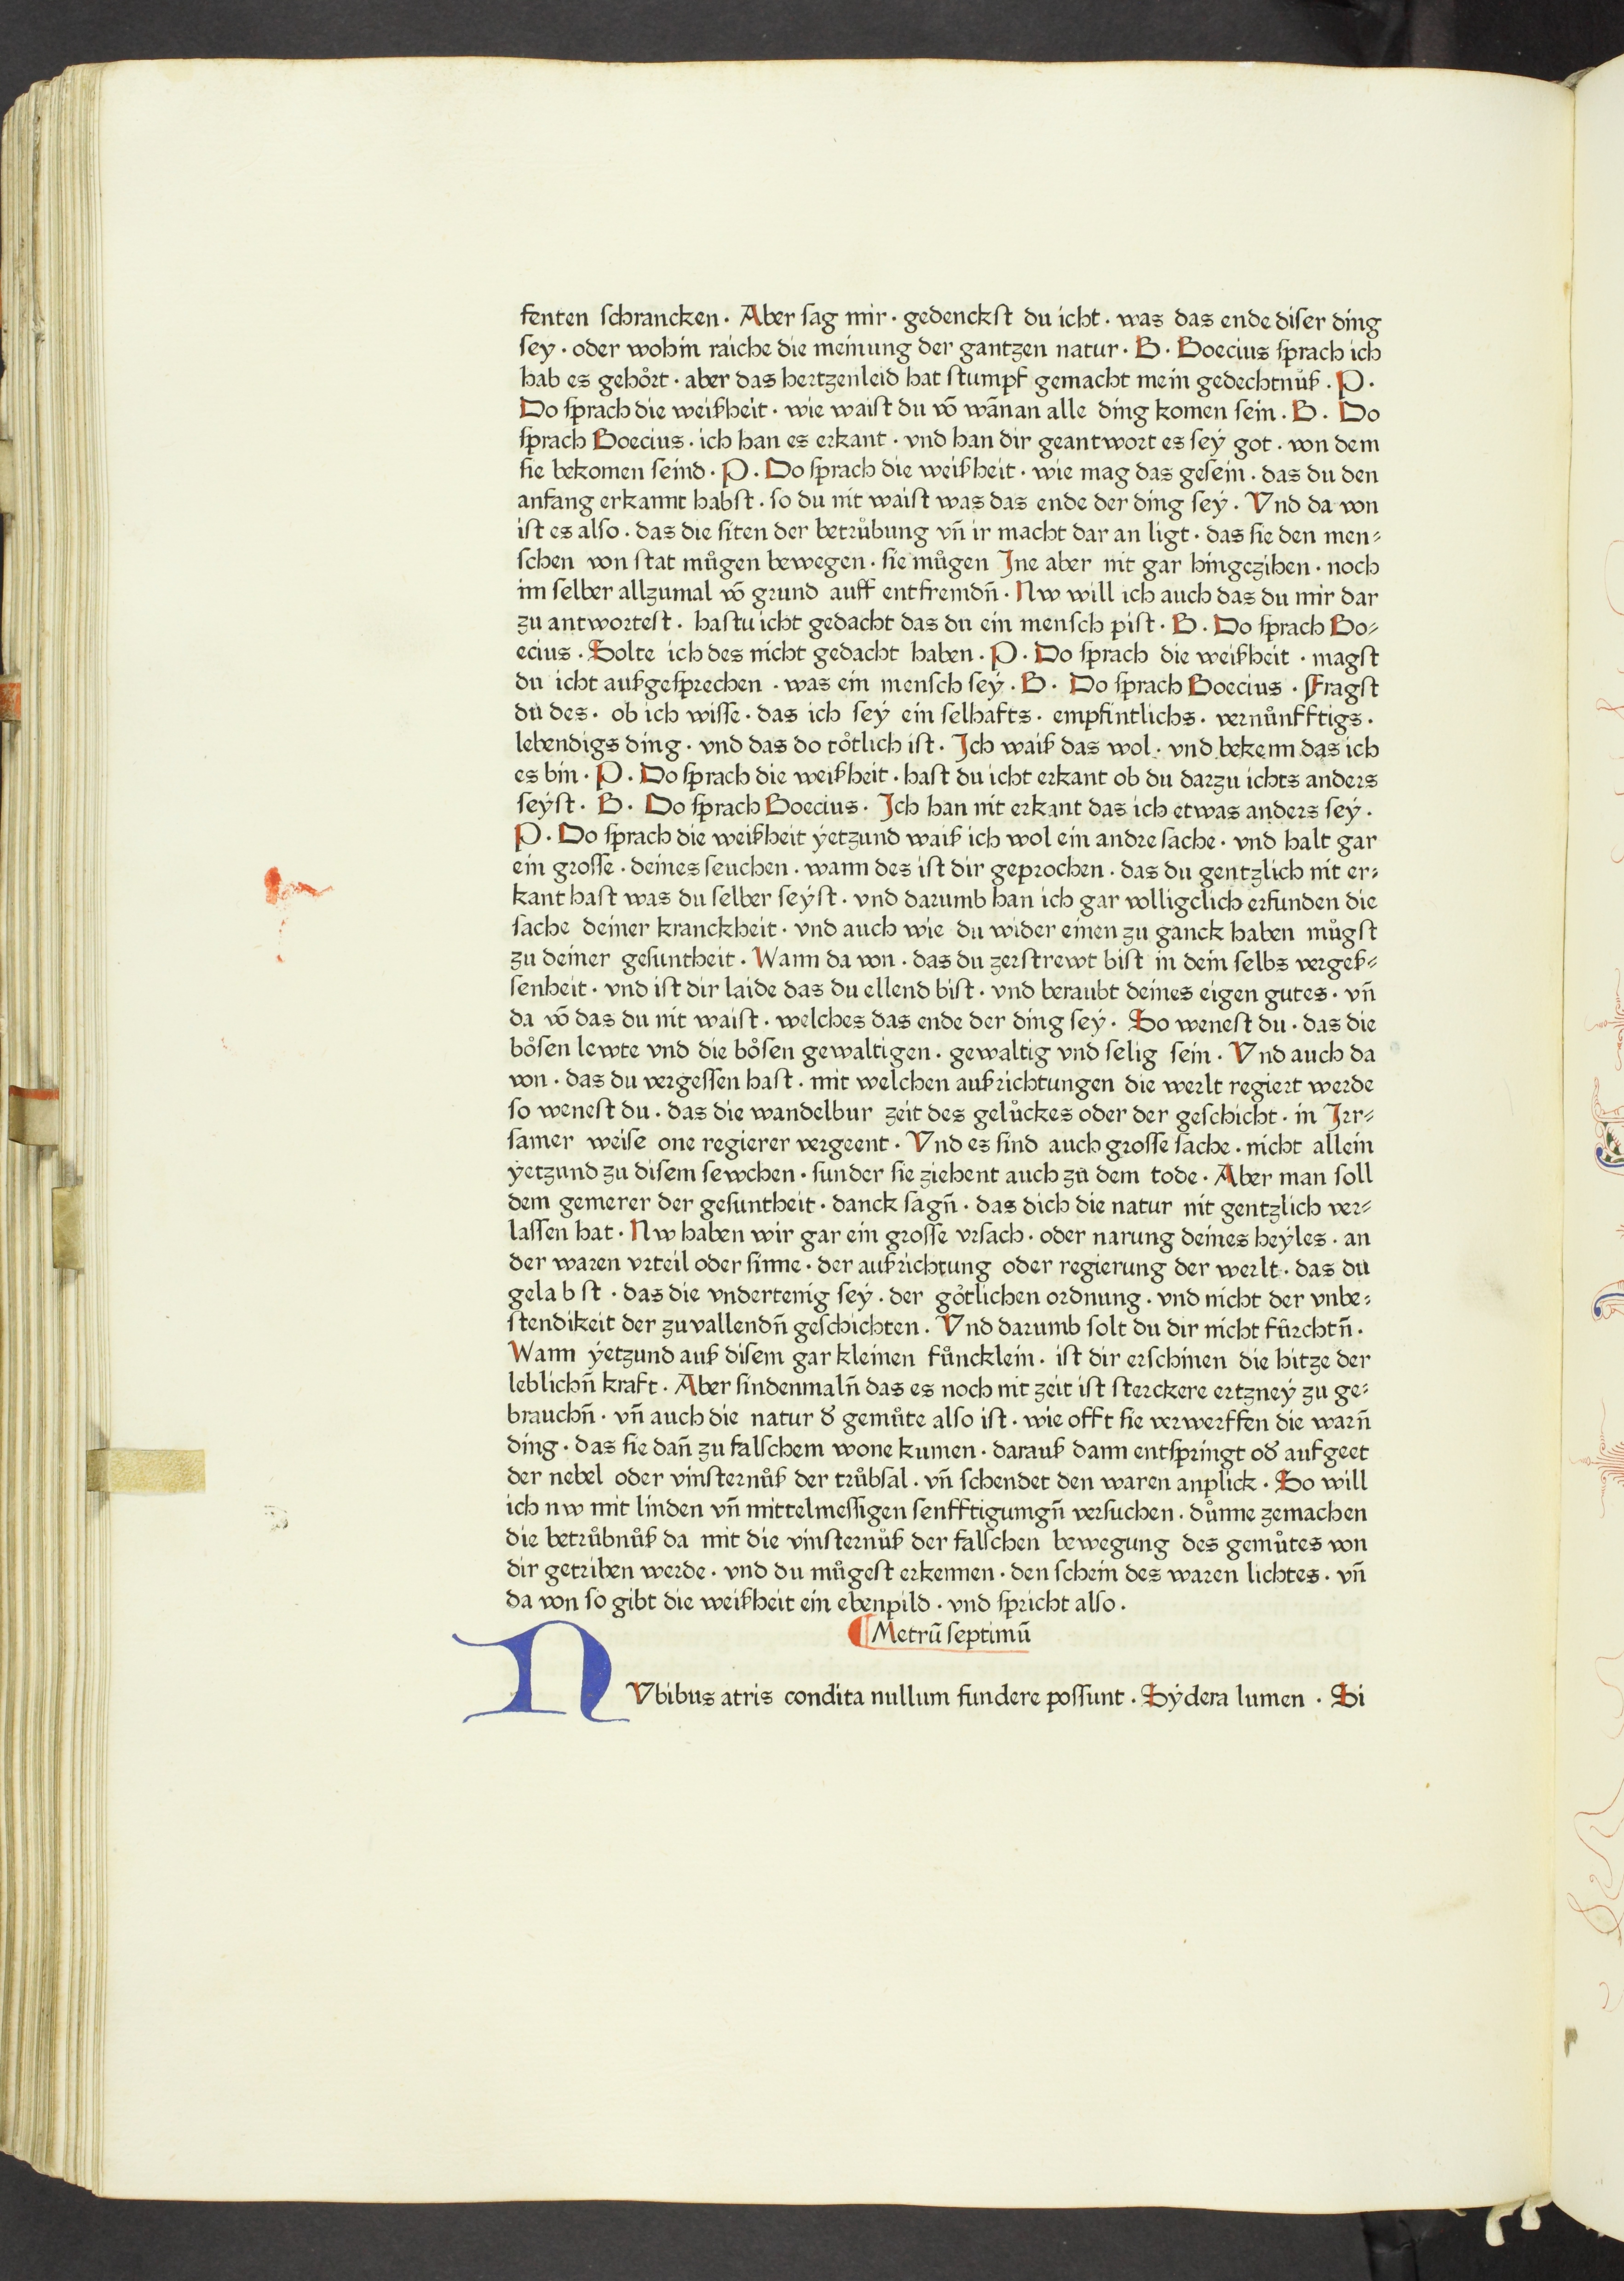 fenten schrancken · Aber ſag mir · gedenckſt du icht · was das ende diſer ding
ſey · oder wohin raiche die meinung der gantzen natur · B · Boecius ſprach ich
hab es gehoͤrt · aber das hertzenleid hat ſtumpf gemacht mein gedechtnuͤß · P ·
Do ſprach die weißheit · wie waiſt du võ wãnan alle ding komen ſein · B · Do
ſprach Boecius · ich han es erkant · vnd han dir geantwort es ſeÿ got · von dem
ſie bekomen ſeind · P · Do ſprach die weißheit · wie mag das geſein · das du den
anfang erkannt habſt · ſo du nit waiſt was das ende der ding ſeÿ · Vnd da von
iſt es alſo · das die ſiten der betruͤbung vñ ir macht dar an ligt · das ſie den men⸗
ſchen von ſtat muͤgen bewegen · ſie muͤgen Jne aber nit gar hingezihen · noch
im ſelber allzumal võ grund auff entfremdñ · Nw will ich auch das du mir dar
zu antworteſt · haſtu icht gedacht das du ein menſch piſt · B · Do ſprach Bo⸗
ecius · Solte ich des nicht gedacht haben · P · Do ſprach die weißheit · magſt
du icht außgeſprechen · was ein menſch ſeÿ · B · Do ſprach Boecius · Fragſt
du des · ob ich wiſſe · das ich ſeÿ ein ſelhafts · empfintlichs · vernuͤnfftigs ·
lebendigs ding · vnd das do toͤtlich iſt · Jch waiß das wol · vnd bekenn das ich
es bin · P · Do ſprach die weißheit · haſt du icht erkant ob du darzu ichts anders
ſeÿſt · B · Do ſprach Boecius · Jch han nit erkant das ich etwas anders ſeÿ ·
P · Do ſprach die weißheit ÿetzund waiß ich wol ein andre ſache · vnd halt gar
ein groſſe · deines ſeuchen · wann des iſt dir geprochen · das du gentzlich nit er⸗
kant haſt was du ſelber ſeÿſt · vnd darumb han ich gar volligclich erfunden die
ſache deiner kranckheit · vnd auch wie du wider einen zu ganck haben muͤgſt
zu deiner geſuntheit · Wann da von · das du zerſtrewt biſt in dein ſelbs vergeß⸗
ſenheit · vnd iſt dir laide das du ellend biſt · vnd beraubt deines eigen gutes · vñ
da võ das du nit waiſt · welches das ende der ding ſeÿ · So weneſt du · das die
boͤſen lewte vnd die boͤſen gewaltigen · gewaltig vnd ſelig ſein · Vnd auch da
von · das du vergeſſen haſt · mit welchen außrichtungen die werlt regiert werde
ſo weneſt du · das die wandelbur zeit des geluͤckes oder der geſchicht · in Jrr⸗
ſamer weiſe one regierer vergeent · Vnd es ſind auch groſſe ſache · nicht allein
ÿetzund zu diſem ſewchen · ſunder ſie ziehent auch zu dem tode · Aber man ſoll
dem gemerer der geſuntheit · danck ſagñ · das dich die natur nit gentzlich ver⸗
laſſen hat · Nw haben wir gar ein groſſe vrſach · oder narung deines heÿles · an
der waren vrteil oder ſinne · der außrichtung oder regierung der werlt · das du
gelabſt · das die vndertenig ſeÿ · der goͤtlichen ordnung · vnd nicht der vnbe⸗
ſtendikeit der zuvallendñ geſchichten · Vnd darumb ſolt du dir nicht fuͤrchtñ ·
Wann ÿetzund auß diſem gar kleinen fuͤncklein · iſt dir erſchinen die hitze der
leblichñ kraft · Aber ſindenmalñ das es noch nit zeit iſt ſterckere ertzneÿ zu ge⸗
brauchñ · vñ auch die natur ð gemuͤte alſo iſt · wie offt ſie verwerffen die warñ
ding · das ſie dañ zu falſchem wone kumen · darauß dann entſpringt oð aufgeet
der nebel oder vinſternuͤß der truͤbſal · vñ ſchendet den waren anplick · So will
ich nw mit linden vñ mittelmeſſigen ſenfftigumgñ verſuchen · duͤnne zemachen
die betruͤbnuͤß da mit die vinſternuͤß der falſchen bewegung des gemuͤtes von
dir getriben werde · vnd du muͤgeſt erkennen · den ſchein des waren lichtes · vñ
da von ſo gibt die weißheit ein ebenpild · vnd ſpricht alſo ·
¶ Metrũ ſeptimũ
NVbibus atris condita nullum fundere poſſunt · Sÿdera lumen · Si